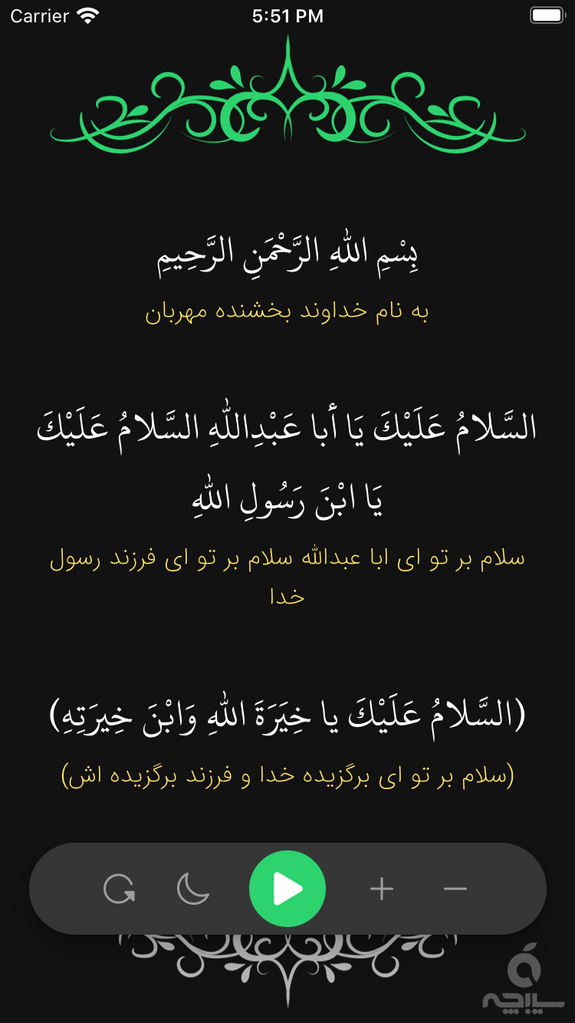 Carrier 5:51 PM
بِسْمِ اللهِ الرَّحْمَنِ الرَّحِيمِ
به نام خداوند بخشنده مهربان
السَّلامُ عَلَيْكَ يَا أبا عَبْدِاللهِ السَّلامُ عَلَيْكَ
يَا ابْنَ رَسُولِ اللهِ
سلام بر تو ای ابا عبدالله سلام بر تو ای فرزند رسول
خدا
(السَّلامُ عَلَيْكَ يا خِيَرَةَ اللهِ وَابْنَ خِيرَتِهِ)
(سلام بر تو ای برگزیده خدا و فرزند برگزیده اش)
سیبچه